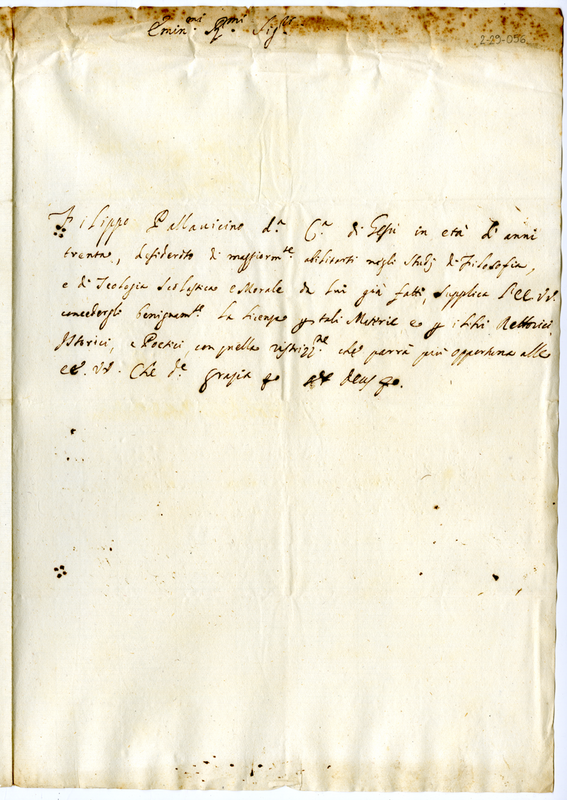 Emin.mi R.mi Sig.ri
2-29-056
Filippo Pallauicino d.a C.a di Giesù in età d'anni
trenta, desideroso di maggiorm.te abilitarsi negli Studj di Filosofia,
e di Teologia Scolastica e Morale da lui già fatti, supplica l'EE. VV.
concedergli benignam.te la licenza p tali Materie e p i libri Rettorici,
Istorici, e Poetici, con quella ristrizz.ne che parrà più opportuna alle
EE. VV. Che d.e grazia